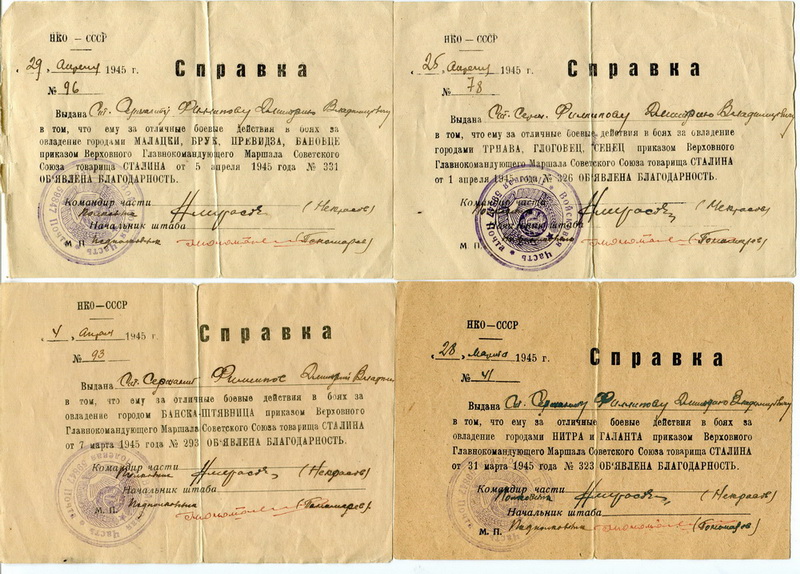 НКО — СССР
29 Апреля 1945 г.
Справка
№ 96
Выдана Ст. Сержанту Филипову Дмитрию Владимировичу
в том, что ему за отличные боевые действия в боях за
овладение городами МАЛАЦКИ, БРУК, ПРЕВИДЗА, БАНОВЦЕ
приказом Верховного Главнокомандующего Маршала Советского
Союза товарища СТАЛИНА от 5 апреля 1945 года № 331
ОБ'ЯВЛЕНА БЛАГОДАРНОСТЬ.
Командир части
Полковник (Некрасов)
Начальник штаба
М П Подполковник (Гономаров)
НКО — СССР
25 Апреля 1945 г.
Справка
№ 78
Выдана Ст. Серж. Филипову Дмитрию Владимировичу
в том, что ему за отличные боевые действия в боях за овладение
городами ТРНАВА, ГЛОГОВЕЦ, СЕНЕЦ приказом Верховного
Главнокомандующего Маршала Советского Союза товарища СТАЛИНА
от 1 апреля 1945 года № 326 ОБ'ЯВЛЕНА БЛАГОДАРНОСТЬ.
Командир части
(Некрасов)
Начальник штаба
М П (Гономаров)
Войсковая Часть Полевая Почта
НКО—СССР
4 Апреля 1945 г.
Справка
№ 93
Выдана Ст. Сержант Филипов Дмитрий
в том, что ему за отличные боевые действия в боях за
овладение городом БАНСКА-ШТЯВНИЦА приказом Верховного
Главнокомандующего Маршала Советского Союза товарища СТАЛИНА
от 7 марта 1945 года № 293 ОБ'ЯВЛЕНА БЛАГОДАРНОСТЬ.
Командир части
Полковник (Некрасов)
Начальник штаба
М. П. Подполковник (Гономаров)
НКО—СССР
28 Марта 1945 г.
Справка
№ 41
Выдана Ст. Сержанту Филипову Дмитрию Владимировичу
в том, что ему за отличные боевые действия в боях за
овладение городами НИТРА и ГАЛАНТА приказом Верховного
Главнокомандующего Маршала Советского Союза товарища СТАЛИНА
от 31 марта 1945 года № 323 ОБ'ЯВЛЕНА БЛАГОДАРНОСТЬ.
Командир части
Полковник (Некрасов)
Начальник штаба
М. П. Подполковник (Гономаров)